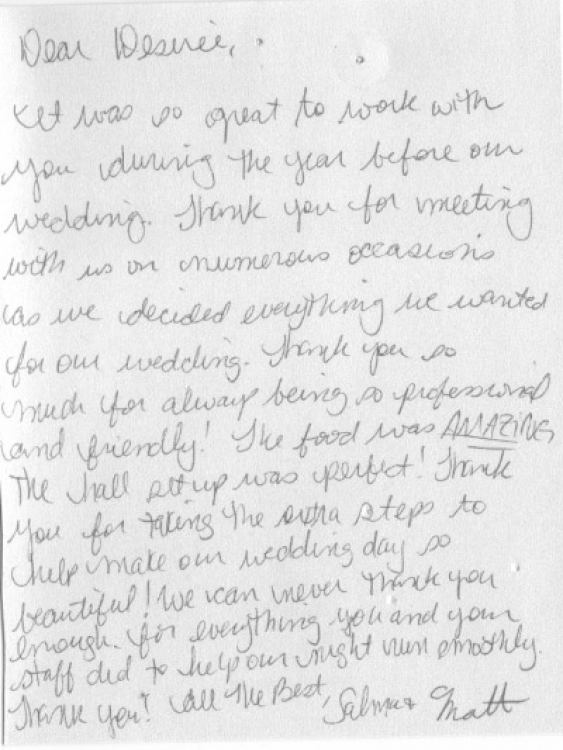 Dear Desirée,
It was so great to work with
you during the year before our
wedding. Thank you for meeting
with us on numerous occasions
as we decided everything we wanted
for our wedding. Thank you so
much for always being so professional
and friendly! The food was AMAZING
The hall setup was perfect! Thank
you for taking the extra steps to
help make our wedding day so
beautiful! We can never thank you
enough. For everything you and your
staff did to help our night run smoothly.
Thank you! All The Best,
Salma + Matt